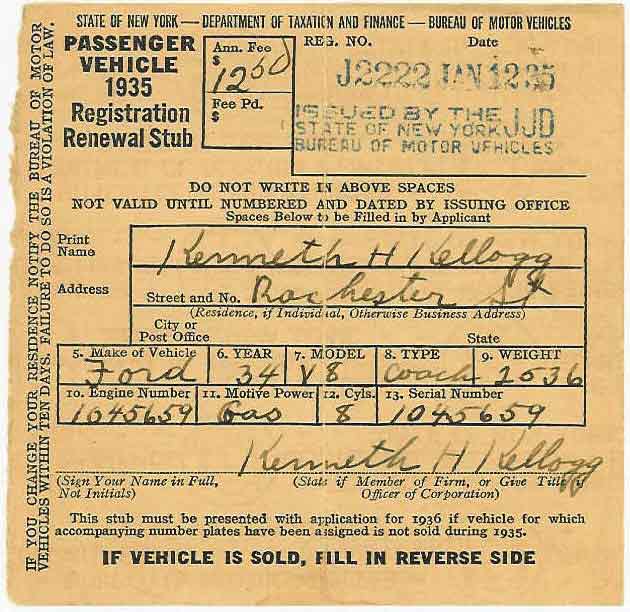 STATE OF NEW YORK — DEPARTMENT OF TAXATION AND FINANCE — BUREAU OF MOTOR VEHICLES
PASSENGER
VEHICLE
1935
Registration
Renewal Stub
Ann. Fee
$
12 50
Fee Pd.
$
REG. NO. Date
J2222 JAN 12 35
ISSUED BY THE JJD
STATE OF NEW YORK
BUREAU OF MOTOR VEHICLES
DO NOT WRITE IN ABOVE SPACES
NOT VALID UNTIL NUMBERED AND DATED BY ISSUING OFFICE
Spaces Below to be Filled in by Applicant
Print
Name
Kenneth H Kellogg
Address
Street and No. Rochester St
(Residence, if Individual, Otherwise Business Address)
City or
Post Office
State
5. Make of Vehicle 6. YEAR 7. MODEL 8. TYPE 9. WEIGHT
Ford 34 V8 Coach 2536
10. Engine Number 11. Motive Power 12. Cyls. 13. Serial Number
1045659 Gas 8 1045659
Kenneth H Kellogg
(Sign Your Name in Full,
Not Initials)
(State if Member of Firm, or Give Title if
Officer of Corporation)
This stub must be presented with application for 1936 if vehicle for which
accompanying number plates have been assigned is not sold during 1935.
IF VEHICLE IS SOLD, FILL IN REVERSE SIDE
IF YOU CHANGE YOUR RESIDENCE NOTIFY THE BUREAU OF MOTOR
VEHICLES WITHIN TEN DAYS. FAILURE TO DO SO IS A VIOLATION OF LAW.